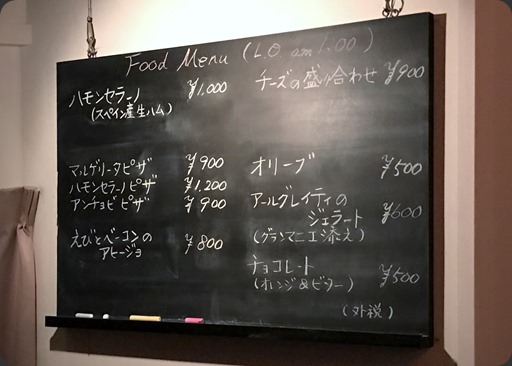 Food Menu (L.O. am 1:00)
ハモンセラーノ ¥1,000
(スペイン産生ハム)
マルゲリータピザ ¥900
ハモンセラーノピザ ¥1,200
アンチョビピザ ¥900
えびとベーコンの
アヒージョ ¥800
チーズの盛り合わせ ¥900
オリーブ ¥500
アールグレイティの
ジェラート ¥600
(グランマニエ添え)
チョコレート
(オレンジ&ビター) ¥500
(外税)